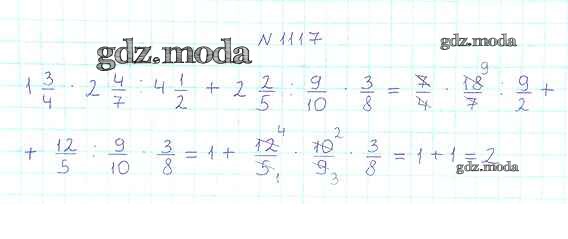 gdz.moda
N 1117
gdz.moda
1 3/4 · 2 4/7 : 4 1/2 + 2 2/5 : 9/10 · 3/8 = 7/4 · 18/7 9 : 9/2 +
+ 12/5 : 9/10 · 3/8 = 1 + 12 4/5 1 · 10 2/9 3 · 3/8 = 1 + 1 = 2
gdz.moda